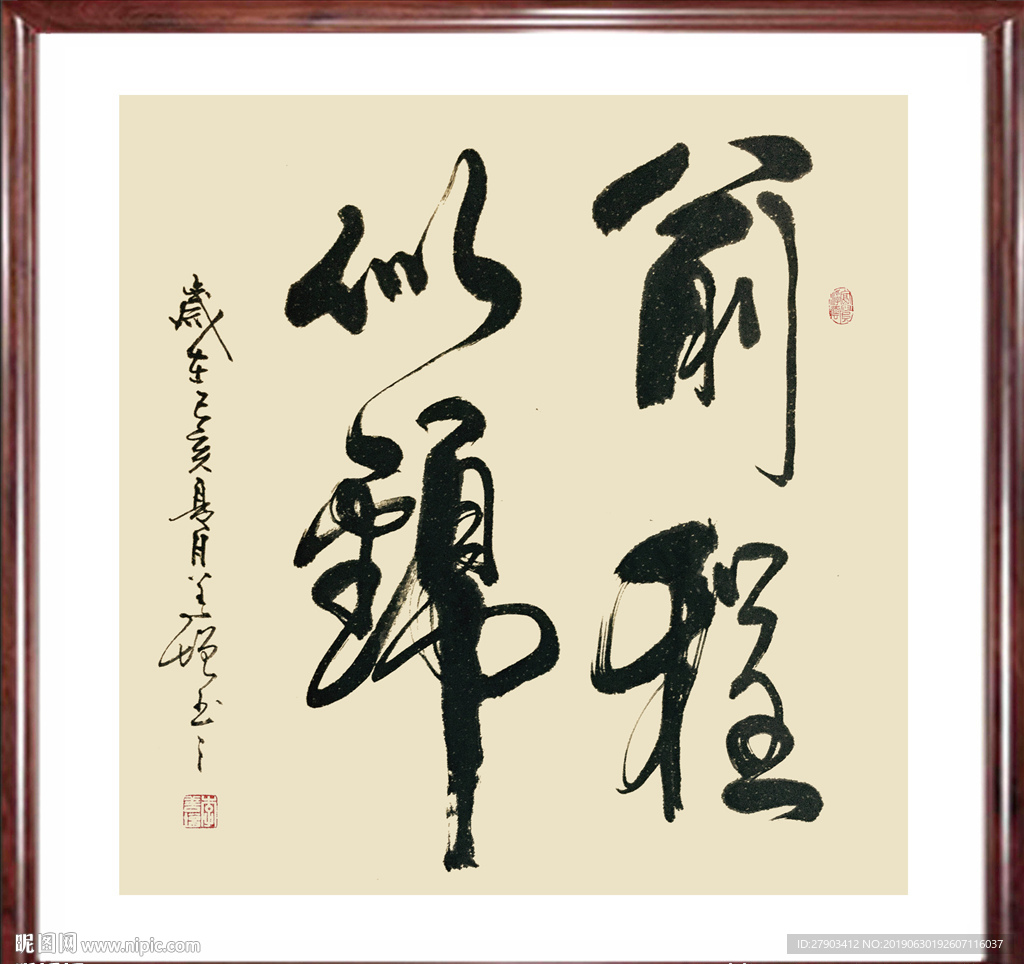 前程
似錦
歲在己亥夏月善增书之
李善增
昵图网 www.nipic.com
ID:27903412 NO:20190630192607116037